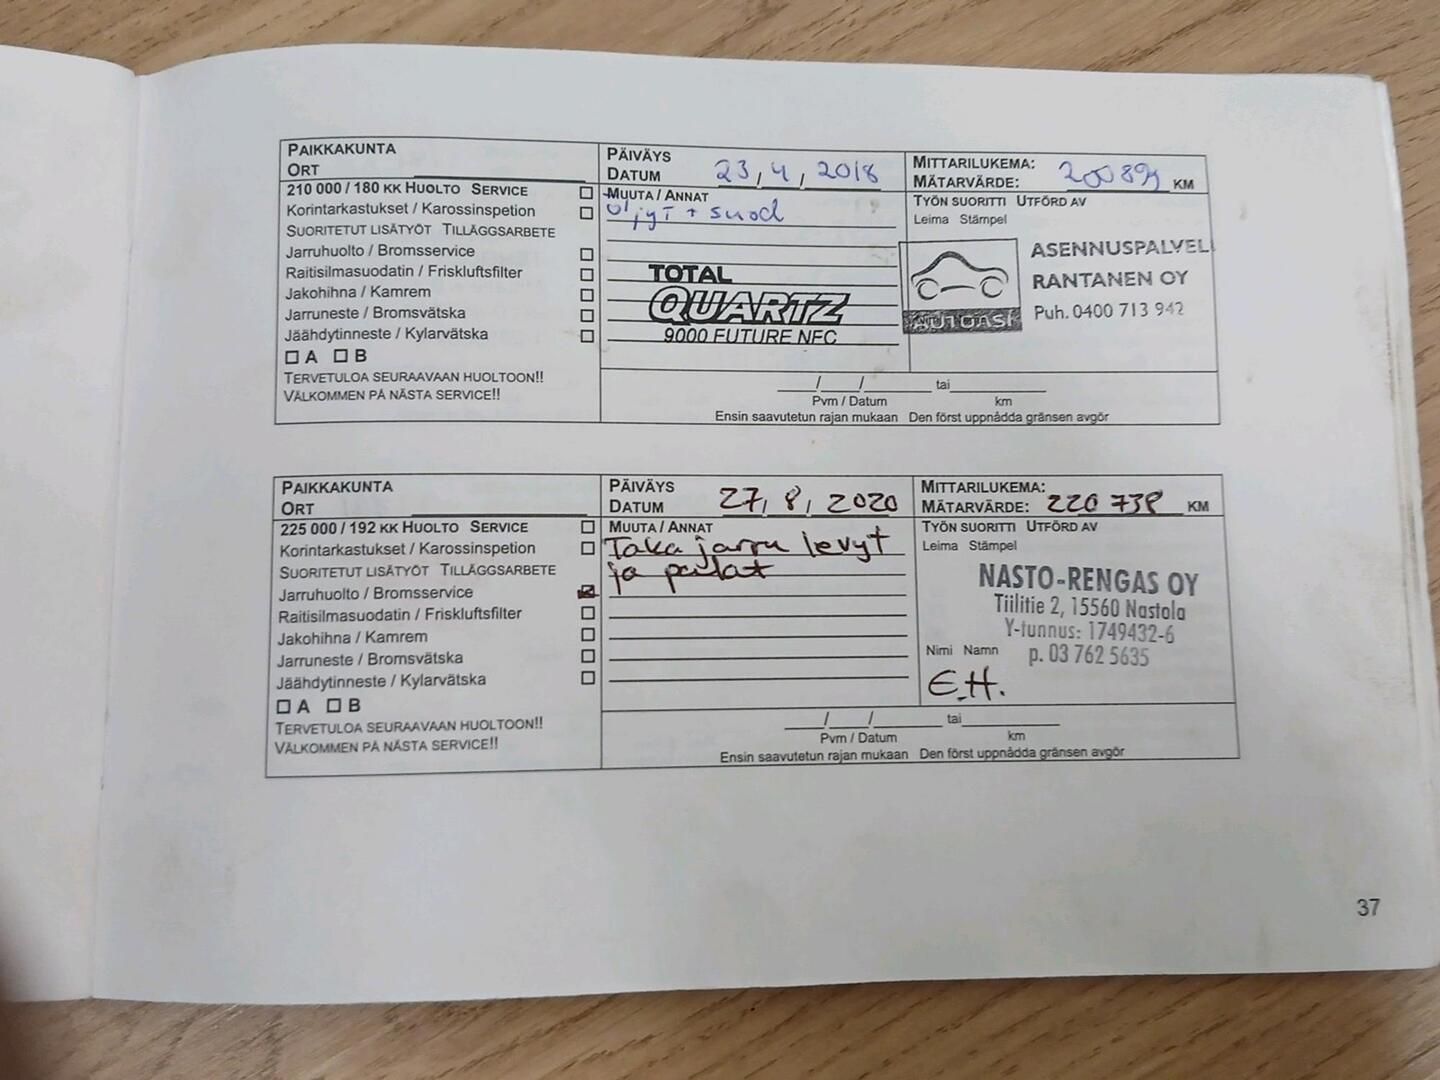 PAIKKAKUNTA
ORT
PÄIVÄYS
DATUM 23, 4, 2018
MITTARILUKEMA:
MÄTARVÄRDE: 200894 KM
210 000 / 180 KK HUOLTO SERVICE
MUUTA / ANNAT
Öljyt + suod
TYÖN SUORITTI UTFÖRD AV
Leima Stämpel
Korintarkastukset / Karossinspetion
SUORITETUT LISÄTYÖT TILLÄGGSARBETE
Jarruhuolto / Bromsservice
Raitisilmasuodatin / Friskluftsfilter
Jakohihna / Kamrem
Jarruneste / Bromsvätska
Jäähdytinneste / Kylarvätska
A B
TERVETULOA SEURAAVAAN HUOLTOON!!
VÄLKOMMEN PÅ NÄSTA SERVICE!!
TOTAL
QUARTZ
9000 FUTURE NFC
AUTOASI
ASENNUSPALVEL
RANTANEN OY
Puh. 0400 713 942
/ / tai
Pvm / Datum km
Ensin saavutetun rajan mukaan Den först uppnådda gränsen avgör
PAIKKAKUNTA
ORT
PÄIVÄYS
DATUM 27, 8, 2020
MITTARILUKEMA:
MÄTARVÄRDE: 220 738 KM
225 000 / 192 KK HUOLTO SERVICE
MUUTA / ANNAT
Taka jarru levyt
ja palat
TYÖN SUORITTI UTFÖRD AV
Leima Stämpel
Korintarkastukset / Karossinspetion
SUORITETUT LISÄTYÖT TILLÄGGSARBETE
Jarruhuolto / Bromsservice
Raitisilmasuodatin / Friskluftsfilter
Jakohihna / Kamrem
Jarruneste / Bromsvätska
Jäähdytinneste / Kylarvätska
A B
TERVETULOA SEURAAVAAN HUOLTOON!!
VÄLKOMMEN PÅ NÄSTA SERVICE!!
NASTO-RENGAS OY
Tiilitie 2, 15560 Nastola
Y-tunnus: 1749432-6
p. 03 762 5635
Nimi Namn
E.H.
/ / tai
Pvm / Datum km
Ensin saavutetun rajan mukaan Den först uppnådda gränsen avgör
37